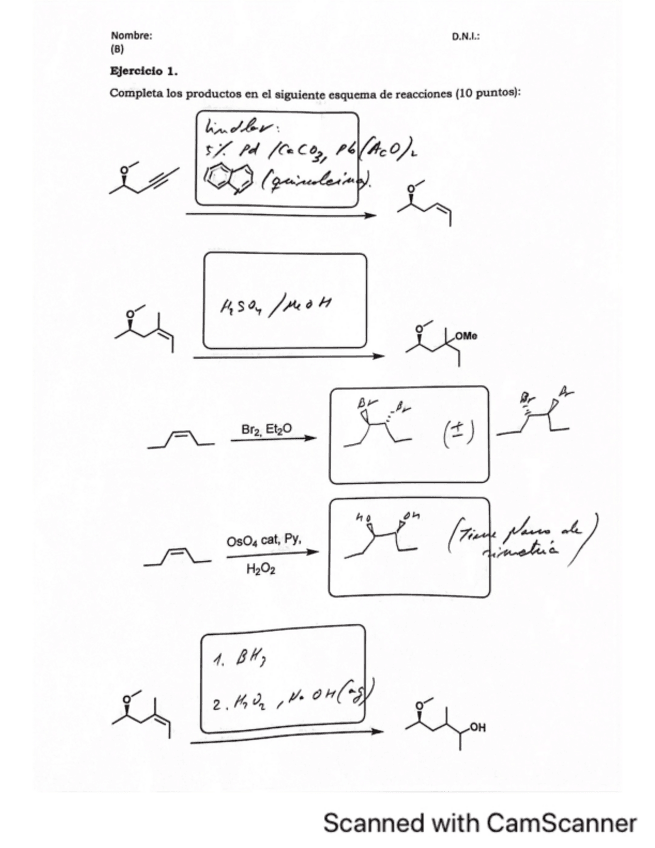 Nombre: D.N.I.:
(B)
Ejercicio 1.
Completa los productos en el siguiente esquema de reacciones (10 puntos):
Lindlar:
5% Pd /CaCO3, Pb(AcO)2
(quinoleina).
O O
H2SO4 /MeOH
O O OMe
Br2, Et2O
Br Br (±) Br Br
OsO4 cat, Py,
H2O2
HO OH (Tiene plano de
simetría)
1. BH3
2. H2O2, NaOH(aq)
O O OH
Scanned with CamScanner